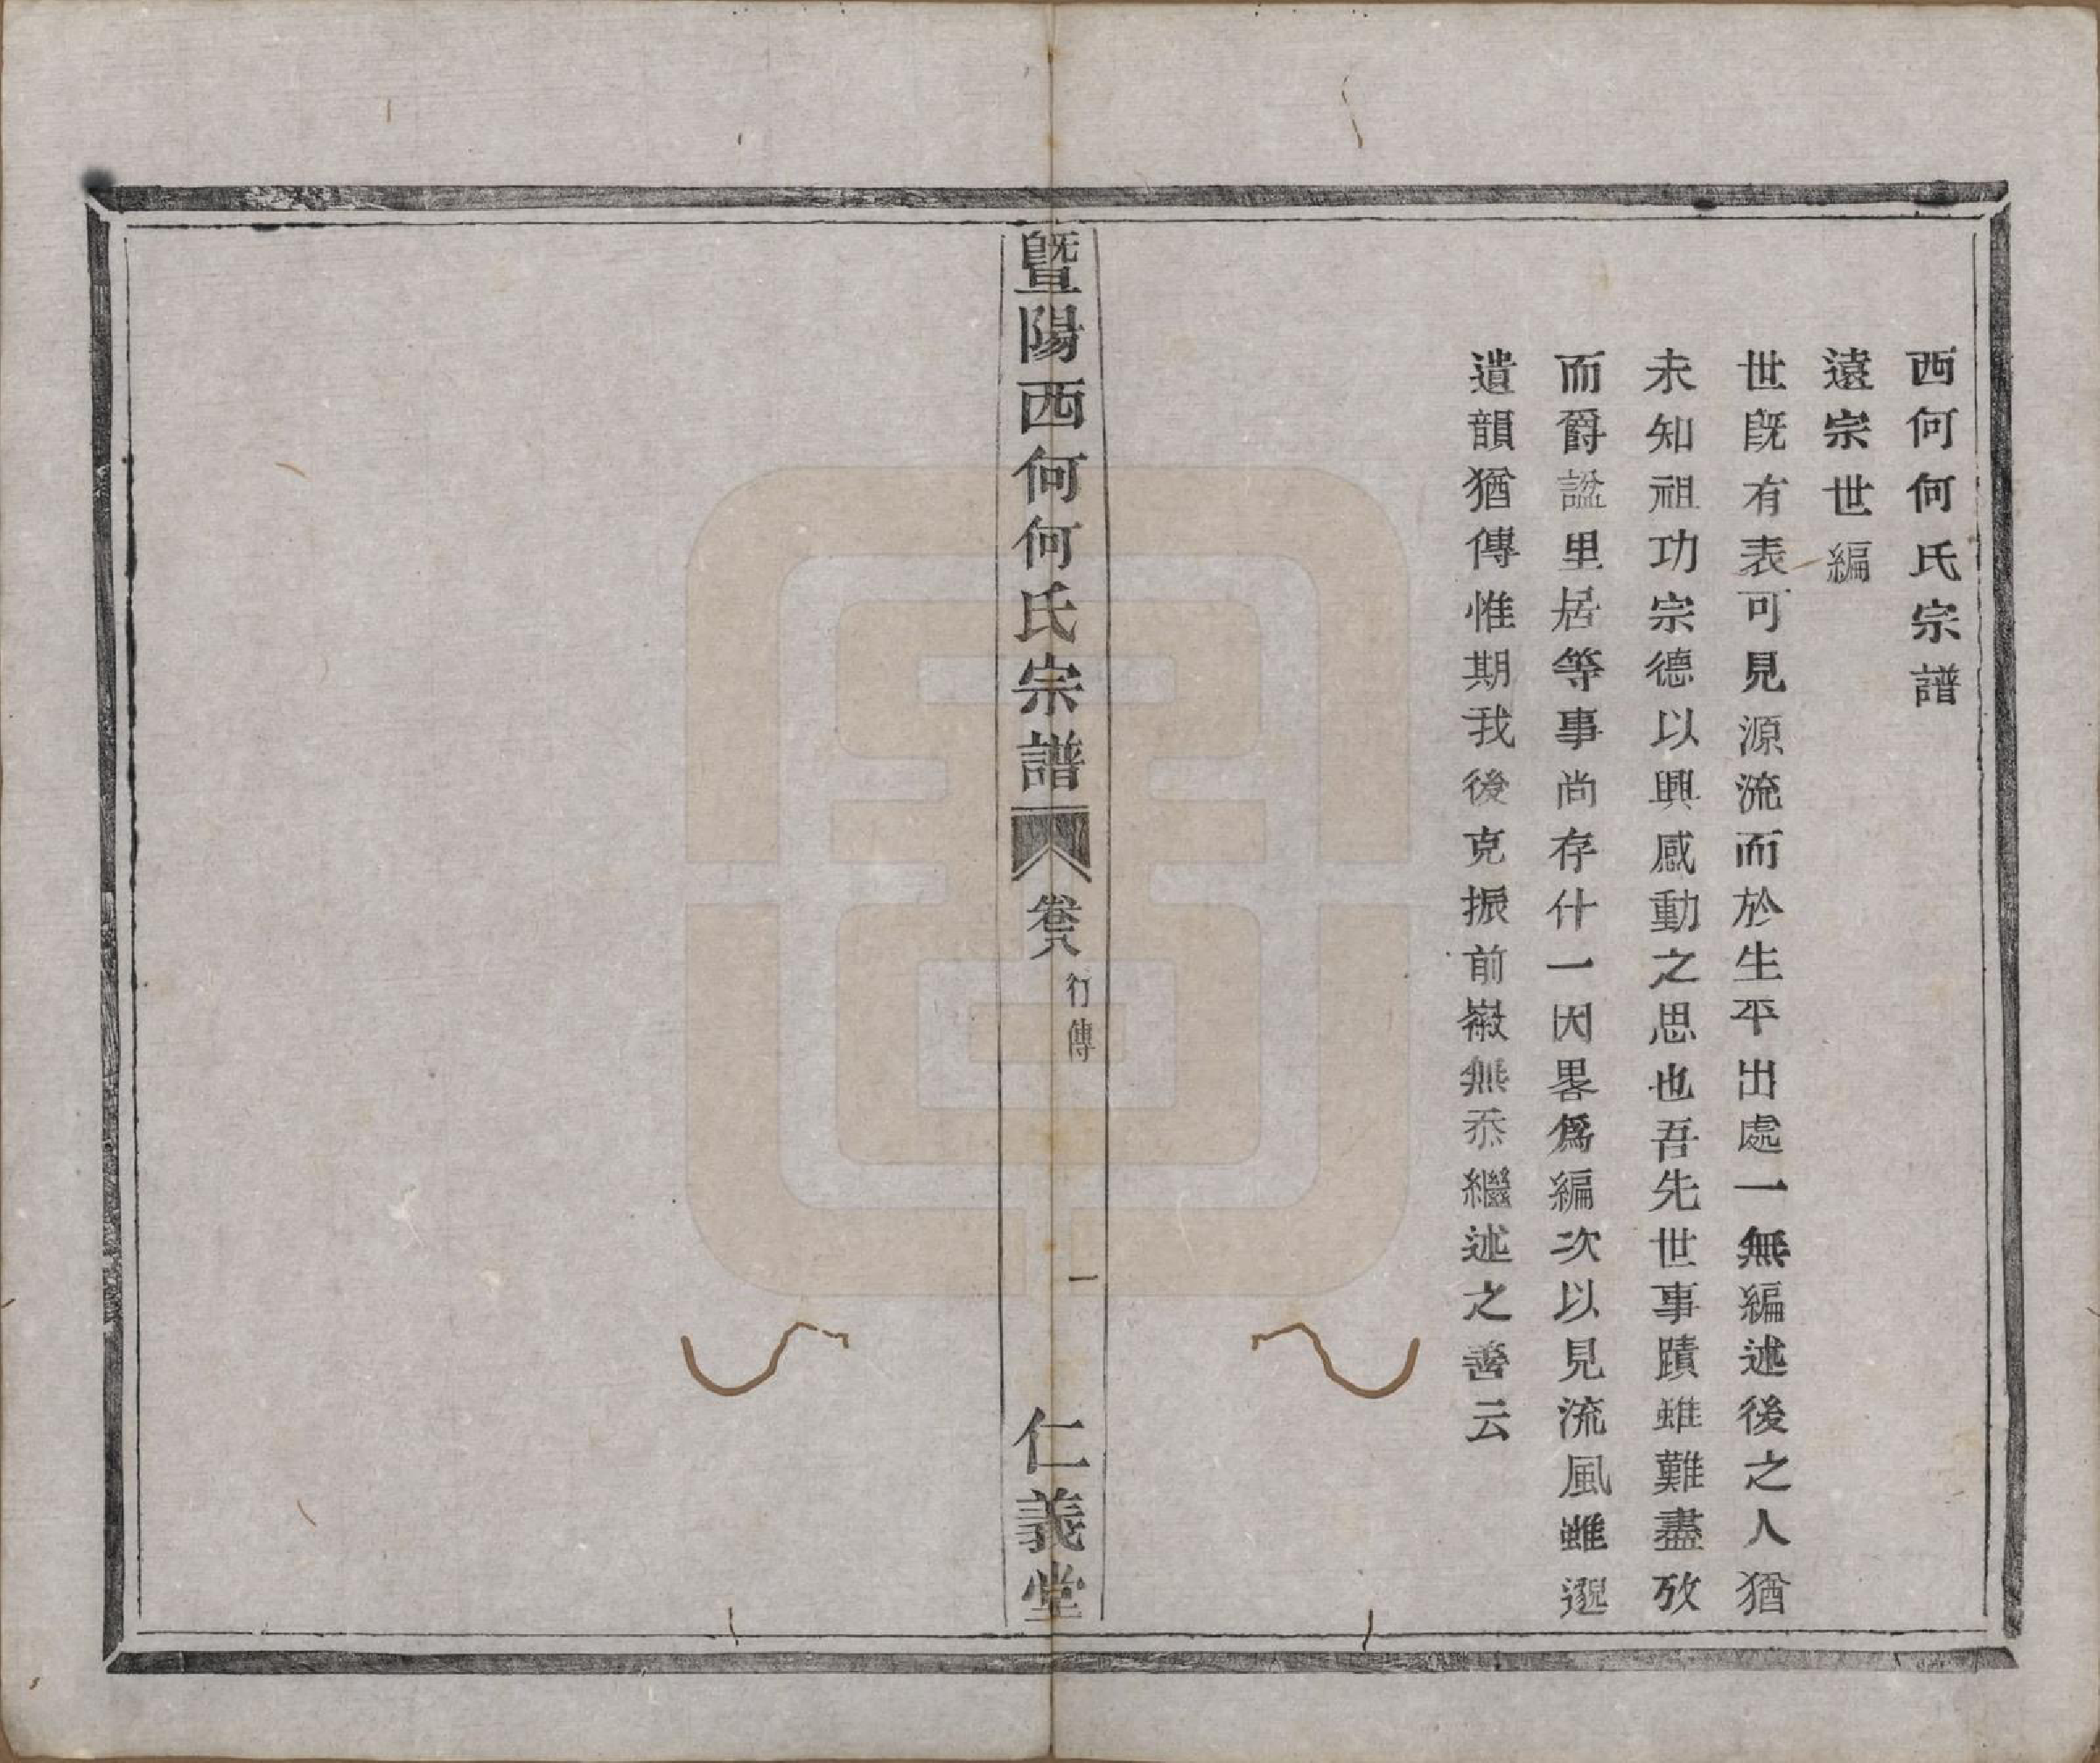 西何何氏宗譜
遠宗世編
世旣有表可見源流而於生平出處一無編述後之人猶
未知祖功宗德以興感動之思也吾先世事蹟雖難盡攷
而爵諡里居等事尚存什一因畧爲編次以見流風雖邈
遺韻猶傳惟期我後克振前徽無忝繼述之善云
暨陽西何何氏宗譜
卷八
行傳
一
仁義堂